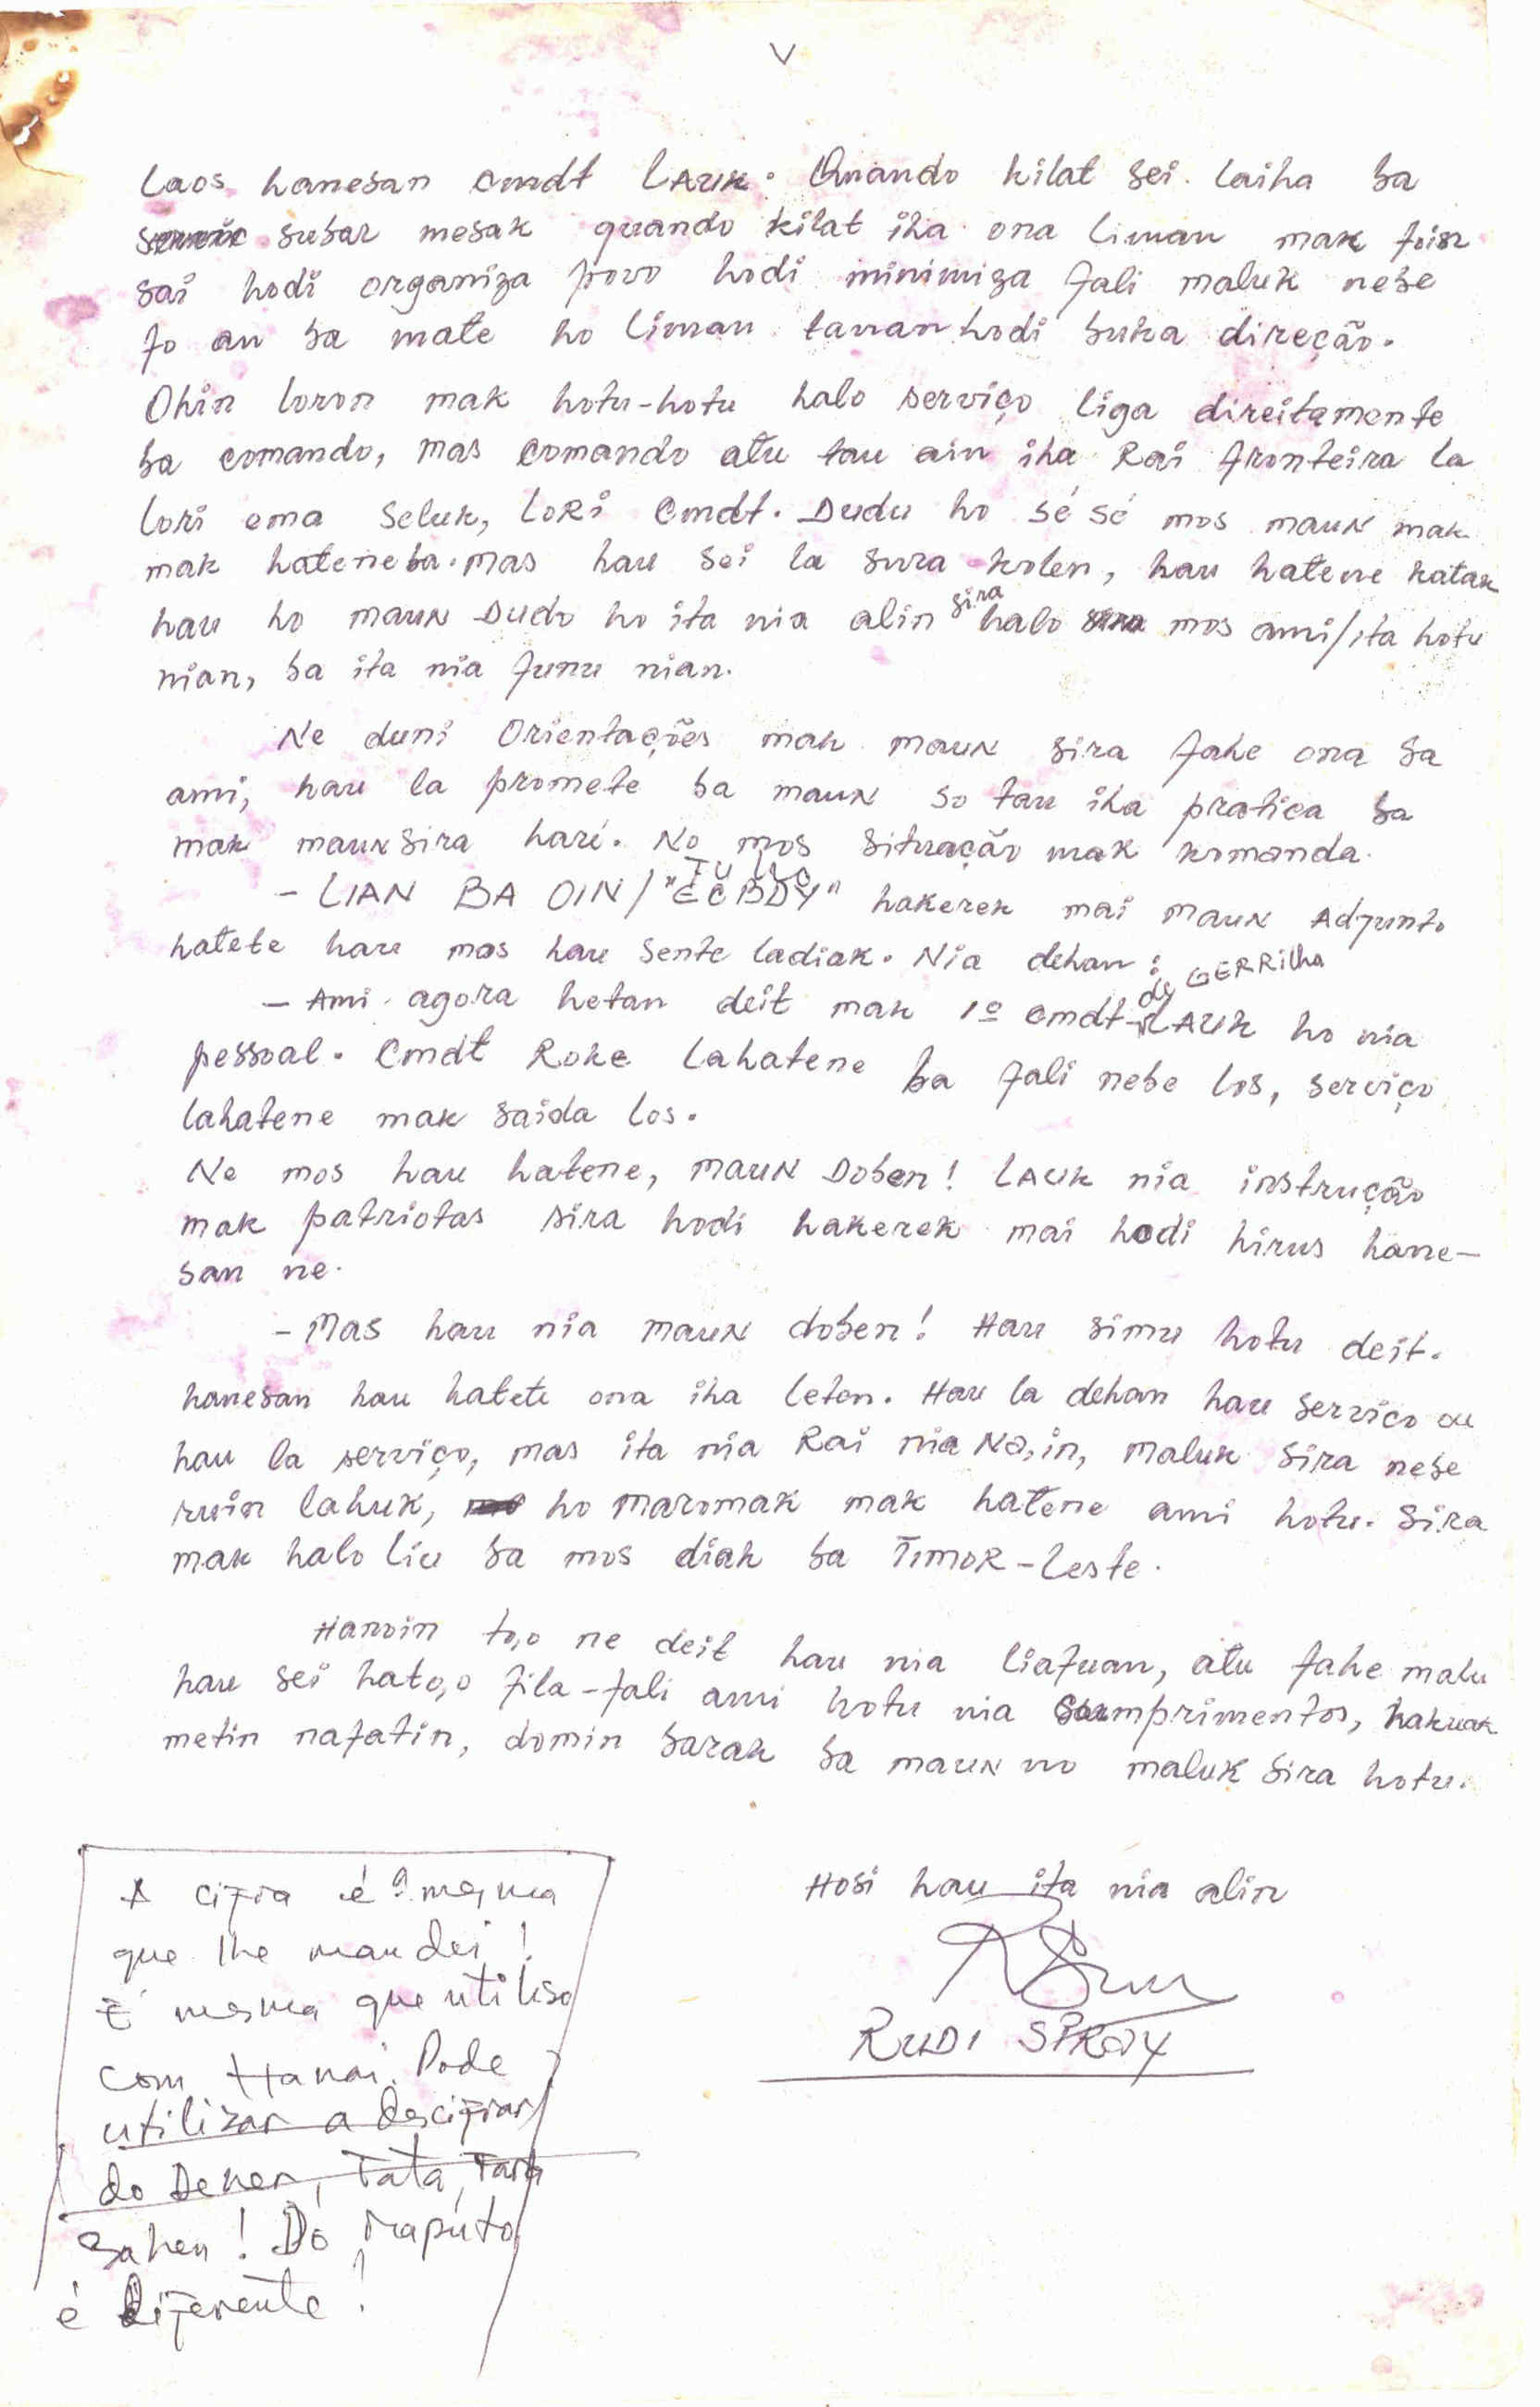 V
Laos hanesan cmdt LAUK. Quando kilat sei laiha ba
subar mesak quando kilat iha ona liman mak foin
sai hodi organiza povo hodi minimiza fali maluk nebe
fo an ba mate ho liman tanan hodi buka direção.
Ohin loron mak hotu-hotu halo serviço liga direitamente
ba comando, mas comando atu tau ain iha Rai fronteira la
lori ema seluk, LORi Cmdt. Dudu ho sé sé mos mauN mak
mak hatene ba. mas hau sei la sura kolen, hau hatene katak
hau ho mauN Dudo ho ita nia alin sira halo mos ami/ita hotu
nian, ba ita nia funu nian.
Ne duni Orientações mak mauN sira fahe ona ba
ami, hau la promete ba mauN so tau iha pratica ba
mak mauN sira haré. No mos situação mak komanda.
- LIAN BA OIN/"ECBDY" hakerek mai mauN Adjunto
hatete hau mos hau sente ladiak. Nia dehan:
- Ami agora hetan deit mak 1º cmdt de GERRilha LAUK ho nia
pessoal. Cmdt Roke lahatene ba fali nebe los, serviço
lahatene mak saida los.
Ne mos hau hatene, mauN Doben! LAUK nia instrução
mak patriotas sira hodi hakerek mai hodi hirus hane-
san ne.
- Mas hau nia mauN doben! Hau simu hotu deit.
hanesan hau hatete ona iha leten. Hau la dehan hau serviço ou
hau la serviço, mas ita nia Rai nia Na,in, maluk sira nebe
ruin lahuk, ho maromak mak hatene ami hotu. Sira
mak halo liu ba mos diak ba TIMOR-Leste.
Hanoin to,o ne deit hau nia liafuan, atu fahe malu
hau sei hato,o fila-fali ami hotu nia cumprimentos, hakuak
metin nafatin, domin barak ba mauN no maluk sira hotu.
Hosi hau ita nia alin
RUDI SPRAY
A cifra é a mesma
que lhe mandei!
É mesma que utiliso
com Hanai. Pode
utilizar a descifrar
do Deker, Tata, Tara
Saken! Do Maputo
é diferente!